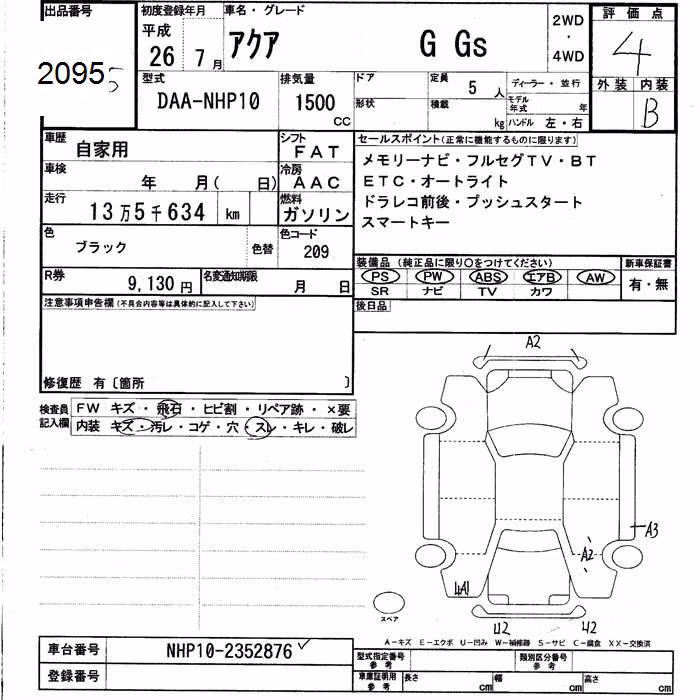 出品番号 初度登録年月 車名・グレード 2WD 評価点
平成 26 7月 アクア G Gs ・ 4
20955 4WD
外装 内装
型式 排気量 ドア 定員 5人 ディーラー・並行 B
DAA-NHP10 1500 cc 形状 積載 kg モデル年式 年
ハンドル 左・右
車歴 自家用 シフト FAT セールスポイント(正常に機能するものに限ります)
車検 年 月( 日) 冷房 AAC メモリーナビ・フルセグTV・BT
ETC・オートライト
走行 13万5千634 km 燃料 ガソリン ドラレコ前後・プッシュスタート
スマートキー
色 ブラック 色替 色コード 209
装備品(純正品に限り○をつけてください) 新車保証書
R券 9,130円 名変通知期限 月 日 PS PW ABS エアB AW 有・無
SR ナビ TV カワ
注意事項申告欄(不具合内容等は具体的に記入して下さい) 後日品
修復歴 有〔箇所 〕
検査員記入欄 FW キズ・飛石・ヒビ割・リペア跡・×要
内装 キズ・汚レ・コゲ・穴・スレ・キレ・破レ
A2
A3
A2
4A1
スペア
U2 U2
A-キズ E-エクボ U-凹み W-補修跡 S-サビ C-腐食 XX-交換済
車台番号 NHP10-2352876 型式指定番号 参考 類別区分番号 参考
登録番号 車庫証明用 参考 長さ cm 幅 cm 高さ cm